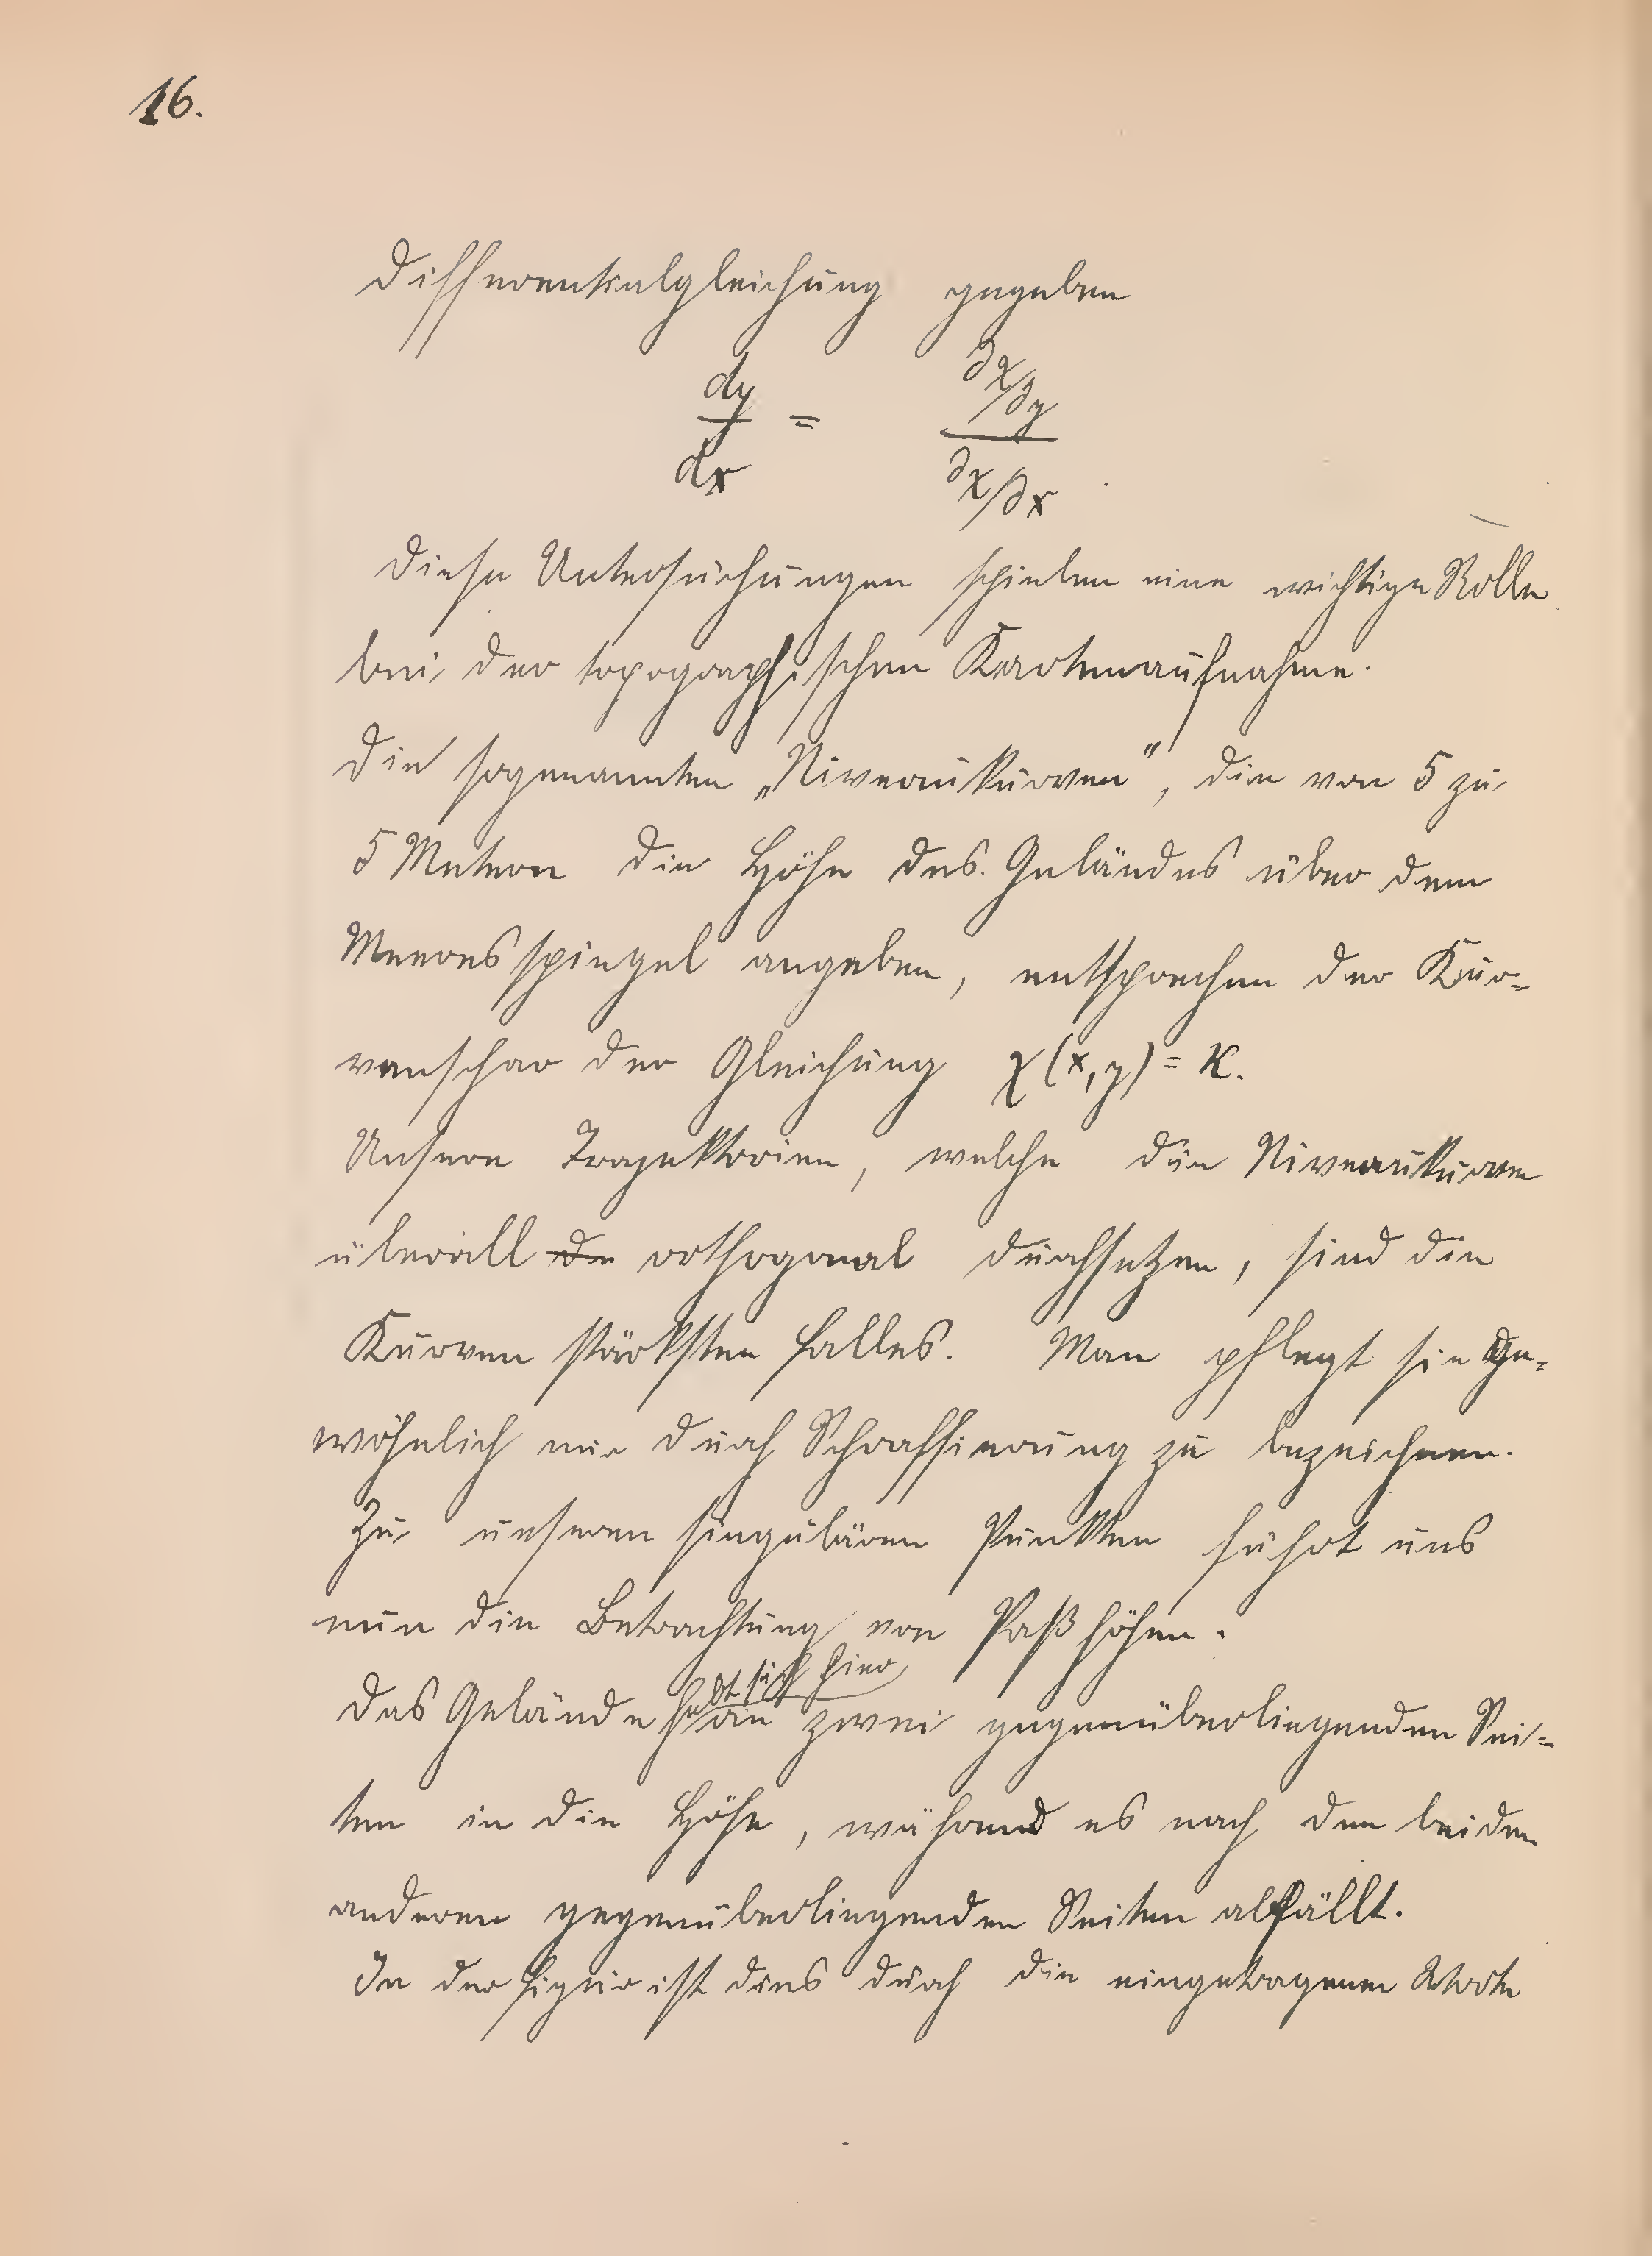 16.
Differentialgleichung gegeben
dy/dx = (∂χ/∂y)/(∂χ/∂x)
Diese Untersuchungen spielen eine wichtige Rolle
bei der topographischen Kartenaufnahme.
Die sogenannten „Niveaukurven“, die von 5 zu
5 Metern die Höhe des Geländes über dem
Meeresspiegel angeben, entsprechen der Kur=
venschar der Gleichung χ(x,y) = K.
Unsere Trajektorien, welche die Niveaukurven
überall de orthogonal durchsetzen, sind die
Kurven stärksten Falles. Man pflegt sie ge=
wöhnlich nur durch Schraffierung zu bezeichnen.
Zu unseren singulären Punkten führt uns
nun die Betrachtung von Paßhöhen.
hebt sich hier
Das Gelände an zwei gegenüberliegenden Sei=
ten in die Höhe, während es nach den beiden
anderen gegenüberliegenden Seiten abfällt.
In der Figur ist dies durch die eingetragenen Worte